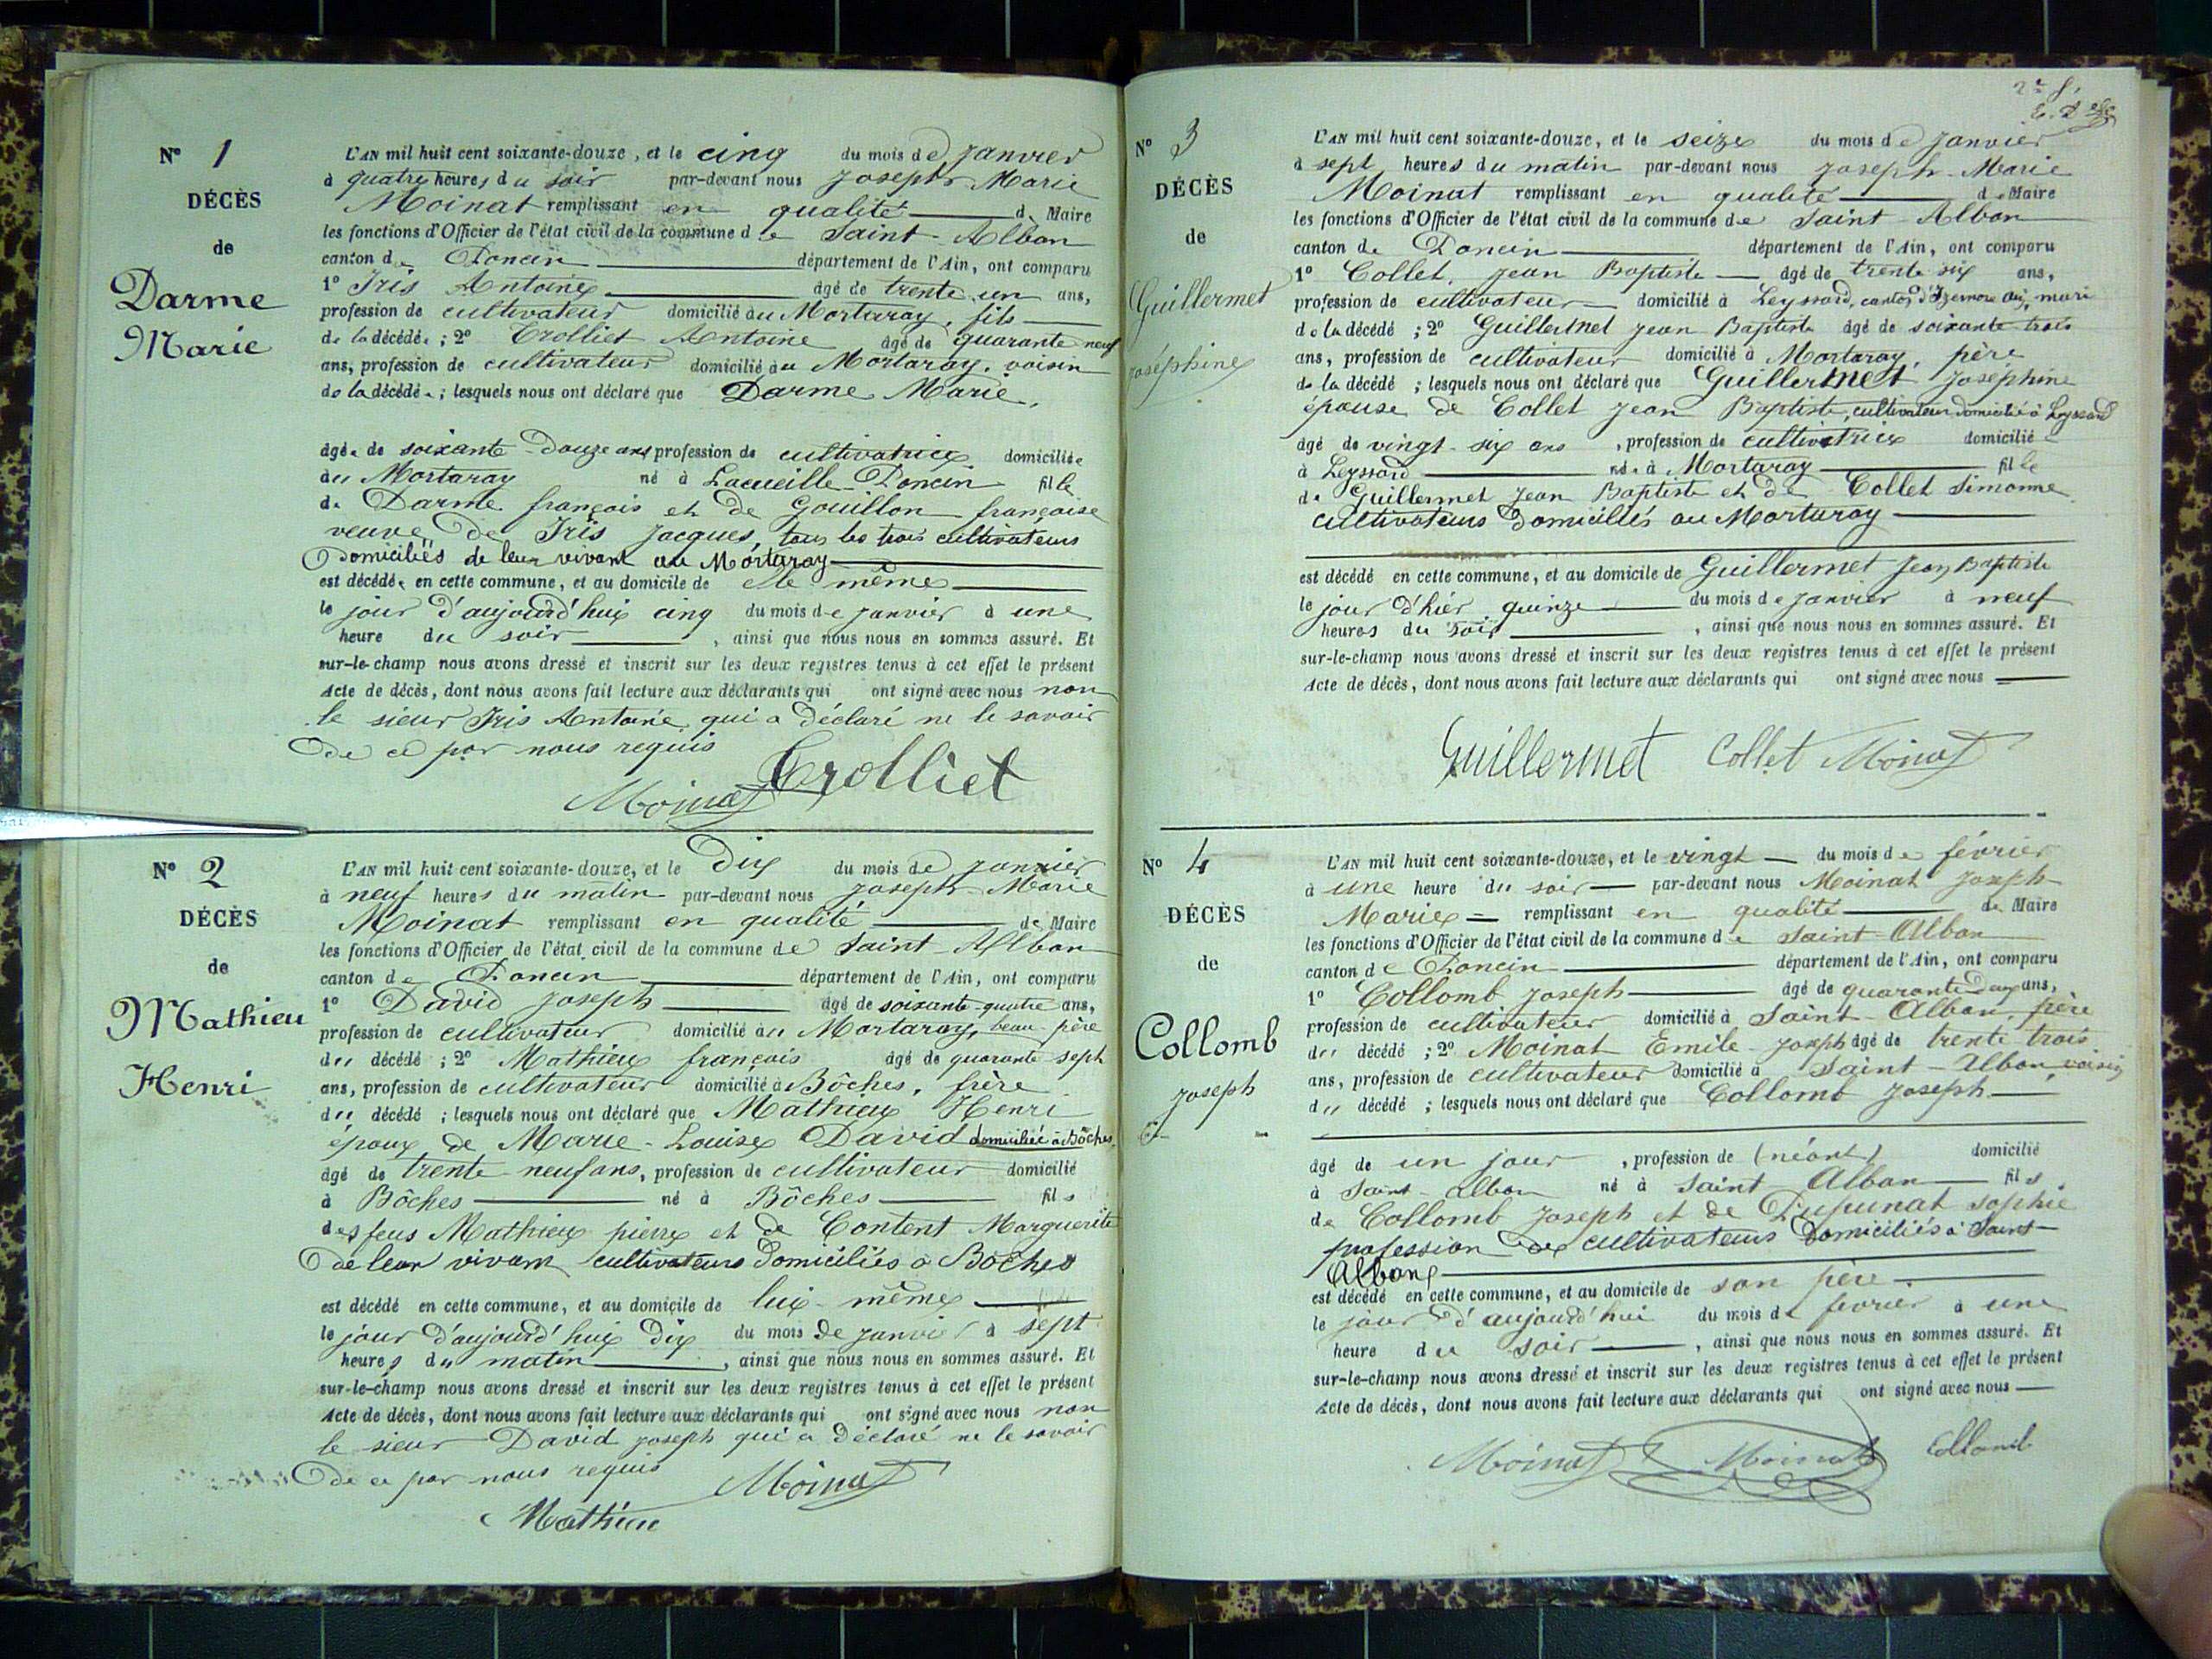 Nº 1
DÉCÈS
de
Darme
Marie
L'AN mil huit cent soixante-douze, et le cinq du mois de Janvier
à quatre heures du soir par-devant nous Joseph Marie
Moinat remplissant en qualité de Maire
les fonctions d'Officier de l'état civil de la commune de Saint-Alban
canton de Poncin département de l'Ain, ont comparu
1º Iris Antoine âgé de trente un ans,
profession de cultivateur domicilié au Mortaray, fils
de la décédée ; 2º Trolliet Antoine âgé de quarante neuf
ans, profession de cultivateur domicilié au Mortaray, voisin
de la décédée ; lesquels nous ont déclaré que Darme Marie,
âgée de soixante-Douze ans profession de cultivatrice domiciliée
au Mortaray né à Lacueille-Poncin fille
de Darme françois et de Gouillon françoise
veuve de Iris Jacques, tous les trois cultivateurs
Domiciliés de leur vivant au Mortaray
est décédée en cette commune, et au domicile de elle même
le jour d'aujourd'hui cinq du mois de Janvier à une
heure du soir , ainsi que nous nous en sommes assuré. Et
sur-le-champ nous avons dressé et inscrit sur les deux registres tenus à cet effet le présent
Acte de décès, dont nous avons fait lecture aux déclarants qui ont signé avec nous non
le sieur Iris Antoine qui a Déclaré ne le savoir
De ce par nous requis
Trolliet
Moinat
Nº 2
DÉCÈS
de
Mathieu
Henri
L'AN mil huit cent soixante-douze, et le Dix du mois de Janvier
à neuf heures du matin par-devant nous Joseph Marie
Moinat remplissant en qualité de Maire
les fonctions d'Officier de l'état civil de la commune de Saint-Alban
canton de Poncin département de l'Ain, ont comparu
1º David Joseph âgé de soixante-quatre ans,
profession de cultivateur domicilié au Mortaray, beau-père
du décédé ; 2º Mathieu françois âgé de quarante sept
ans, profession de cultivateur domicilié à Bôches, frère
du décédé ; lesquels nous ont déclaré que Mathieu Henri
époux de Marie-Louise David domiciliée à Bôches,
âgé de trente-neuf ans, profession de cultivateur domicilié
à Bôches né à Bôches fils
des feus Mathieu pierre et de Content Marguerite
De leur vivant cultivateurs Domiciliés à Bôches
est décédé en cette commune, et au domicile de lui-même
le jour d'aujourd'hui Dix du mois De Janvier à sept
heures du matin , ainsi que nous nous en sommes assuré. Et
sur-le-champ nous avons dressé et inscrit sur les deux registres tenus à cet effet le présent
Acte de décès, dont nous avons fait lecture aux déclarants qui ont signé avec nous non
le sieur David Joseph qui a Déclaré ne le savoir
De ce par nous requis
Moinat
Mathieu
Nº 3
DÉCÈS
de
Guillermet
Joséphine
L'AN mil huit cent soixante-douze, et le seize du mois de Janvier
à sept heures du matin par-devant nous Joseph-Marie
Moinat remplissant en qualité de Maire
les fonctions d'Officier de l'état civil de la commune de Saint-Alban
canton de Poncin département de l'Ain, ont comparu
1º Collet, Jean Baptiste âgé de trente six ans,
profession de cultivateur domicilié à Leyssard, canton d'Izernore Ain, mari
de la décédé ; 2º Guillermet Jean Baptiste âgé de soixante-trois
ans, profession de cultivateur domicilié à Mortaray, père
de la décédé ; lesquels nous ont déclaré que Guillermet Joséphine
épouse de Collet Jean Baptiste, cultivateur domicilié à Leyssard
âgé de vingt-six ans , profession de cultivatrice domicilié
à Leyssard née à Mortaray fille
de Guillermet Jean Baptiste et de Collet Simonne
cultivateurs Domiciliés au Mortaray
est décédé en cette commune, et au domicile de Guillermet Jean Baptiste
le jour d'hier quinze du mois de Janvier à neuf
heures du soir , ainsi que nous nous en sommes assuré. Et
sur-le-champ nous avons dressé et inscrit sur les deux registres tenus à cet effet le présent
Acte de décès, dont nous avons fait lecture aux déclarants qui ont signé avec nous
Guillermet Collet Moinat
Nº 4
DÉCÈS
de
Collomb
Joseph
L'AN mil huit cent soixante-douze, et le vingt du mois de février
à une heure du soir par-devant nous Moinat Joseph
Marie remplissant en qualité de Maire
les fonctions d'Officier de l'état civil de la commune de Saint-Alban
canton de Poncin département de l'Ain, ont comparu
1º Collomb Joseph âgé de quarante Deux ans,
profession de cultivateur domicilié à Saint-Alban, père
du décédé ; 2º Moinat Emile-Joseph âgé de trente-trois
ans, profession de cultivateur domicilié à Saint-Alban voisin
du décédé ; lesquels nous ont déclaré que Collomb Joseph
âgé de un jour , profession de (néant) domicilié
à Saint-Alban né à Saint Alban fils
de Collomb Joseph et de Dupunat sophie
profession de cultivateurs Domiciliés à Saint-
Alban
est décédé en cette commune, et au domicile de son père
le jour d'aujourd'hui du mois de fevrier à une
heure du soir , ainsi que nous nous en sommes assuré. Et
sur-le-champ nous avons dressé et inscrit sur les deux registres tenus à cet effet le présent
Acte de décès, dont nous avons fait lecture aux déclarants qui ont signé avec nous
Moinat Moinat Collomb